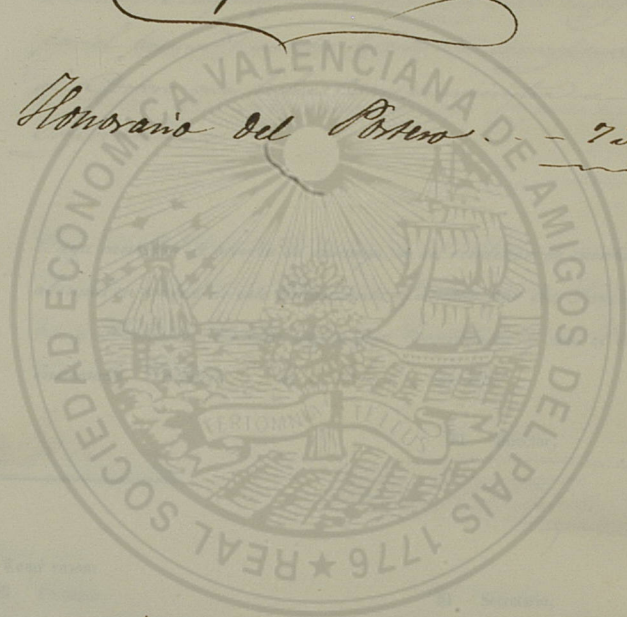 Honorario del Portero
REAL SOCIEDAD ECONOMICA VALENCIANA DE AMIGOS DEL PAIS 1776 ★
FERT OMNIA TELLUS